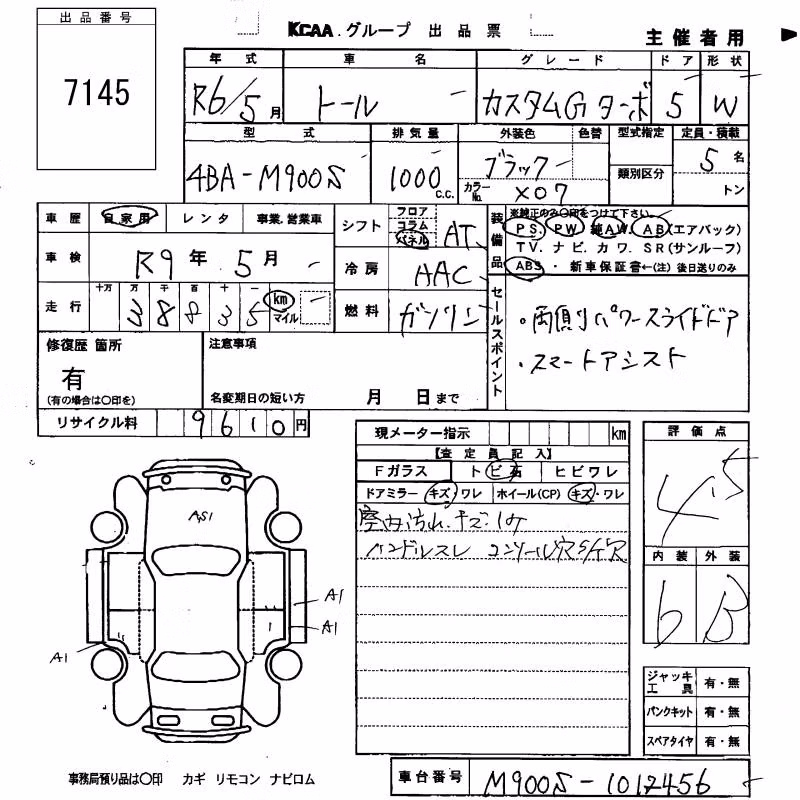 出品番号
7145
KCAA グループ 出品票
主催者用
年式 車名 グレード ドア 形状
R6/5月 トール カスタムG ターボ 5 W
型式 排気量 外装色 色替 型式指定 定員・積載
4BA-M900S 1000 c.c. ブラック カラーNo. X07 類別区分 5名 トン
車歴 自家用 レンタ 事業.営業車
シフト フロア コラム パネル AT
車検 R9年 5月
冷房 AAC
走行 十万 万 千 百 十 一
38835 km マイル
燃料 ガソリン
装備品 ※純正のみ○印をつけて下さい。
PS. PW. 純AW. AB(エアバック)
TV. ナビ. カワ. SR(サンルーフ)
ABS ・ 新車保証書←(注) 後日送りのみ
セールスポイント
・両側パワースライドドア
・スマートアシスト
修復歴 箇所
有
(有の場合は○印を)
注意事項
名変期日の短い方 月 日まで
リサイクル料 9610円
現メーター指示 km
【査定員記入】
Fガラス トビ石 ヒビワレ
ドアミラー キズ・ワレ ホイール(CP) キズ・ワレ
室内汚れ.キズ.
ハンドルスレ コンソール穴
評価点
4.5
内装 外装
6 B
AS1
A1
A1
A1
ジャッキ工具 有・無
パンクキット 有・無
スペアタイヤ 有・無
事務局預り品は○印 カギ リモコン ナビロム
車台番号 M900S-1012456